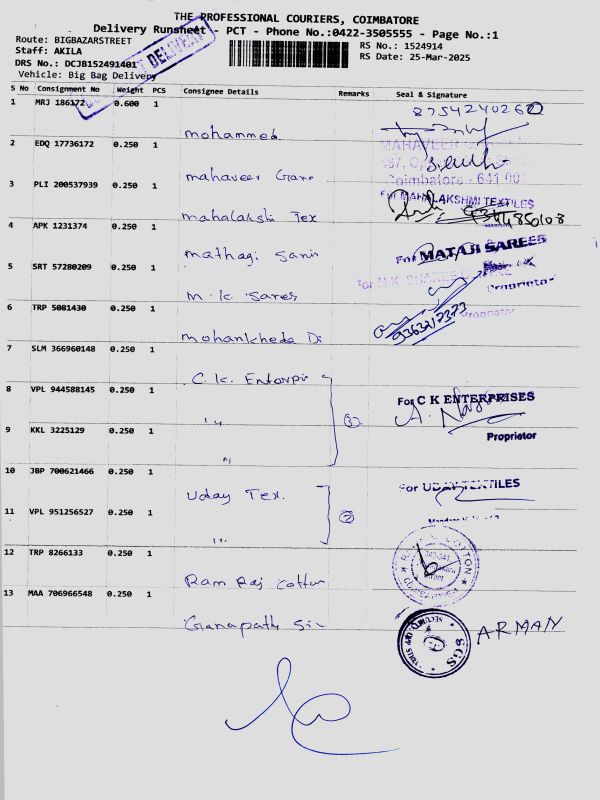 THE PROFESSIONAL COURIERS, COIMBATORE
Delivery Runsheet - PCT - Phone No.:0422-3505555 - Page No.:1
Route: BIGBAZARSTREET
RS No.: 1524914
Staff: AKILA
RS Date: 25-Mar-2025
DRS No.: DCJB152491401
DELIVERY
Vehicle: Big Bag Delivery
S No Consignment No Weight PCS Consignee Details Remarks Seal & Signature
1 MRJ 186172 0.600 1
mohammed
2 EDQ 17736172 0.250 1
mahaveer
Coimbatore - 641 001
3 PLI 200537939 0.250 1
mahalakshi Tex
For MAHALAKSHMI TEXTILES
4 APK 1231374 0.250 1
mathaji
For MATAJI SAREES
Proprietor
5 SRT 57280209 0.250 1
m. k. Sares
6 TRP 5081430 0.250 1
mohankheda
9363217373
Proprietor
7 SLM 366960148 0.250 1
C. k. Enterpri
8 VPL 944588145 0.250 1
"
3
For C K ENTERPRISES
9 KKL 3225129 0.250 1
"
Proprietor
10 JBP 700621466 0.250 1
Uday Tex.
For UDAY TEXTILES
11 VPL 951256527 0.250 1
"
2
12 TRP 8266133 0.250 1
Ram Raj Cotton
COTTON
13 MAA 706966548 0.250 1
Ganapathi
SGS
ARMAN